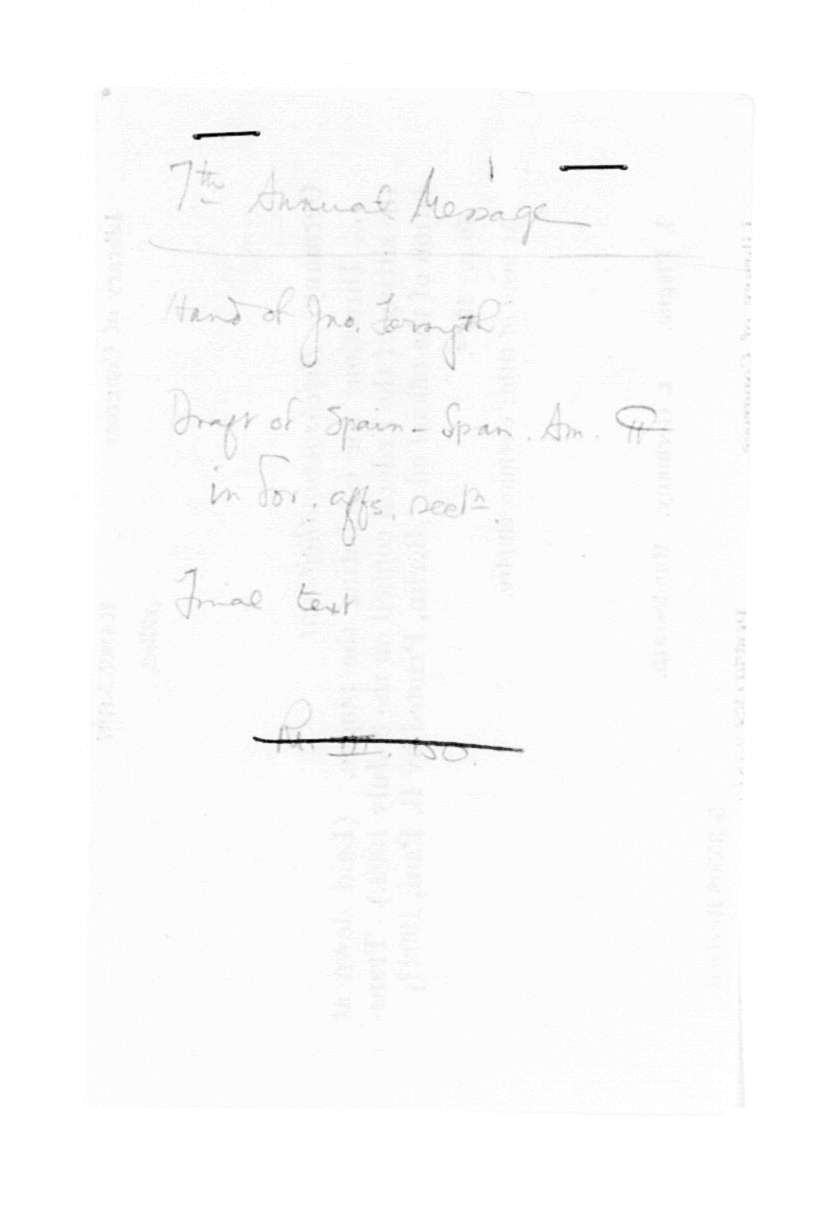 7th Annual Message
Hand of Jno. Forsyth
Draft of Spain - Span. Am. ¶
in For. affs. sectn.
Final text
III. 150.